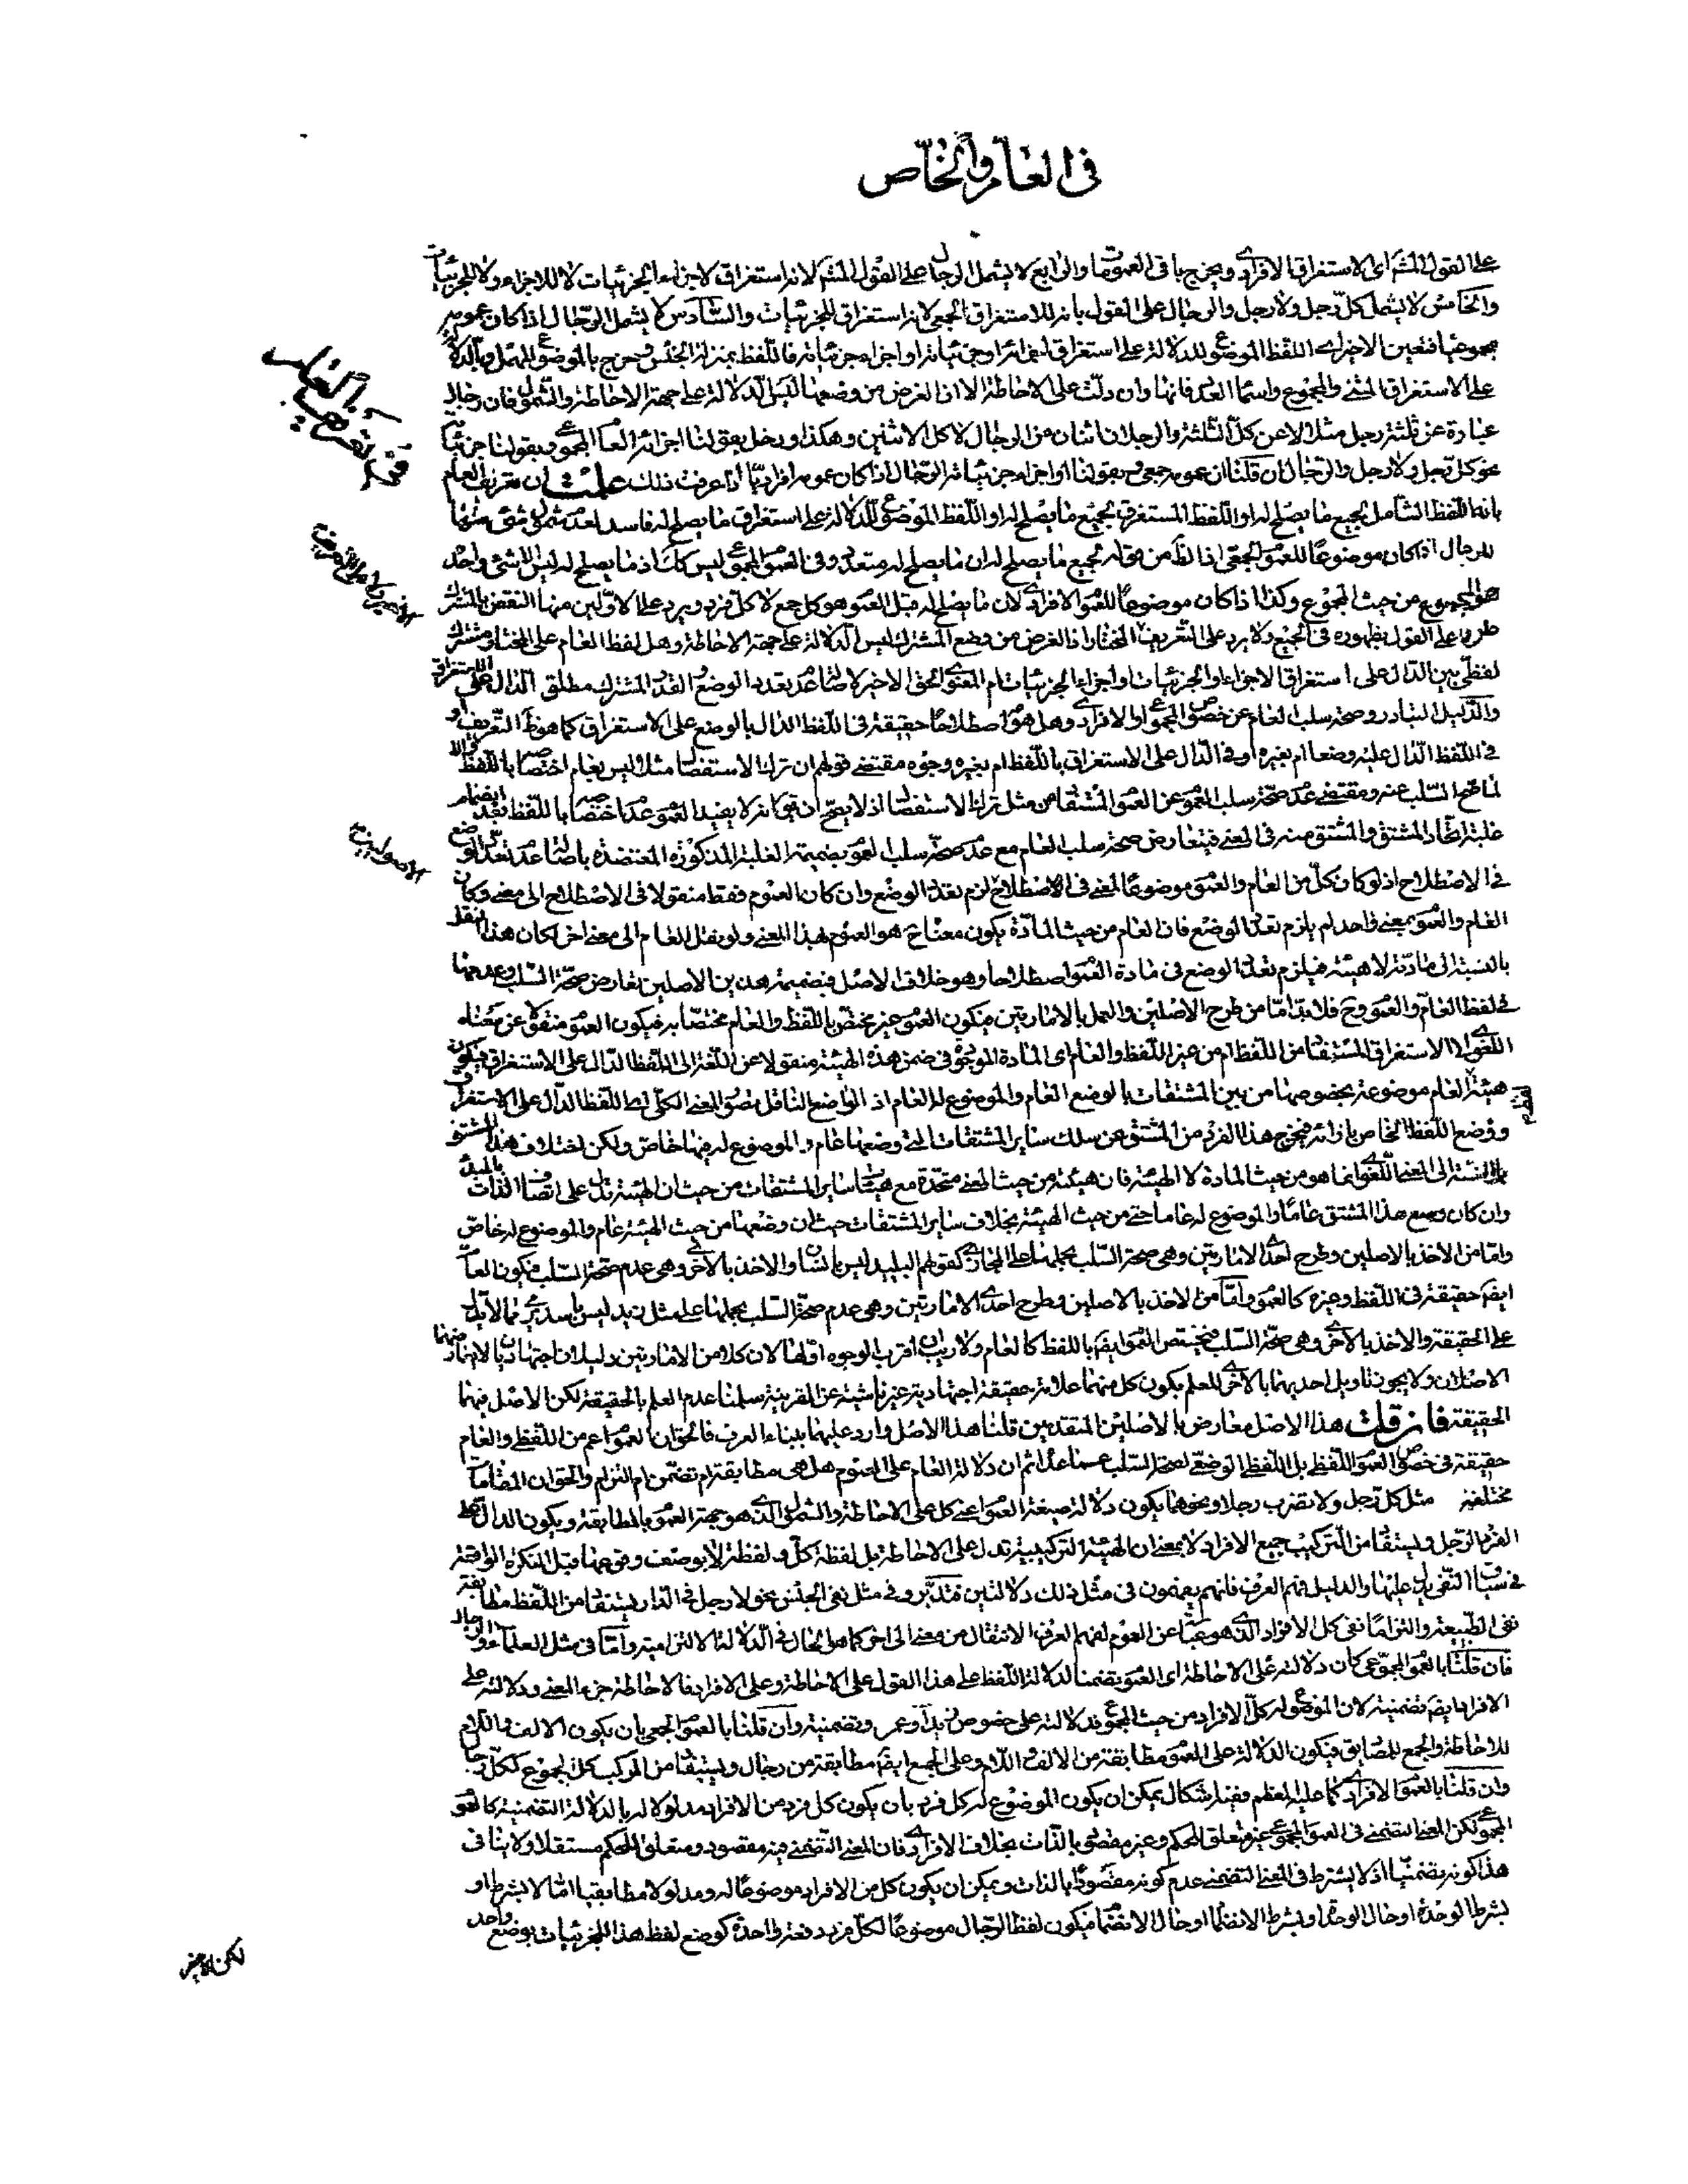 فی العام والخاص
علی القول المشم ای الاستغراق الافرادی ویخرج باقی العمومات واما الرابع لا یشمل الرجال علی القول المشم لانه استغراق لاجزاء الجزئیات لا للاجزاء ولا للجزئیات
والخامس لا یشمل کل رجل ولا رجل والرجال علی القول بانه للاستغراق الجمعی لانه استغراق للجزئیات والسادس لا یشمل الرجال اذا کان عمومه
مجموعیا فتعین الاخیر ای اللفظ الموضوع للدلالة علی استغراق اجزائه او جزئیاته او اجزاء جزئیاته فاللفظ بمنزلة الجنس وخرج بالموضوع المهمل وبالدلالة
علی الاستغراق المثنی والمجموع واسماء العدد فانها وان دلت علی الاحاطة الا ان الغرض من وضعها لیس الدلالة علی جهة الاحاطة والشمول فان رجال
عبارة عن ثلثة رجل مثلا لا عن کل الثلثة والرجلان اثنان من الرجال لا کل الاثنین وهکذا ودخل بقولنا اجزائه العام المجموعی وبقولنا جزئیاته
نحو کل رجل ولا رجل والرجال ان قلنا ان عمومه جمعی وبقولنا او اجزاء جزئیاته الرجال اذا کان عمومه افرادیا اذا عرفت ذلک علمت ان تعریف العام
بانه اللفظ الشامل لجمیع ما یصلح له او اللفظ المستغرق لجمیع ما یصلح له او اللفظ الموضوع للدلالة علی استغراق ما یصلح له فاسد لعدم شمول شئ منها
للرجال اذا کان موضوعا للعموم الجمعی اذ الظ من قوله لجمیع ما یصلح له ان ما یصلح له متعدد وفی العموم المجموعی لیس کک اذ ما یصلح له لیس الا شئ واحد
هو المجموع من حیث المجموع وکذا اذا کان موضوعا للعموم الافرادی لان ما یصلح له قبل العموم هو کل جمع لا کل فرد ویرد علی الاولین منها النقض بالمشترک
طردا علی القول بظهوره فی الجمیع ولا یرد علی التعریف المختار اذ الغرض من وضع المشترک لیس الدلالة علی جهة الاحاطة وهل لفظ العام علی المختار مشترک
لفظی بین الدال علی استغراق الاجزاء والجزئیات واجزاء الجزئیات ام المعنوی الحق الاخیر لاصالة عدم تعدد الوضع والقدر المشترک مطلق الدال علی الاستغراق
والدلیل التبادر وصحة سلب العام عن خصوص المجموعی او الافرادی وهل هو اصطلاحا حقیقة فی اللفظ الدال بالوضع علی الاستغراق کما هو ظ التعریف او
فی اللفظ الدال علیه وضعا ام بغیره او فی الدال علی الاستغراق باللفظ ام بغیره وجوه مقتضی قولهم ان ترک الاستفصال مثلا لیس بعام اختصاصه باللفظ والا
لما صح السلب عنه ومقتضی عدم صحة سلب العموم عن العموم المستفاد من مثل ترک الاستفصال اذ لا یصح ان یقال انه لا یفید العموم عدم اختصاصه باللفظ بعد انضمام
غلبة اتحاد المشتق والمشتق منه فی المعنی فیتعارض صحة سلب العام مع عدم صحة سلب العموم بضمیمة الغلبة المذکورة المعتضدة باصالة عدم تعدد الوضع
فی الاصطلاح اذ لو کان کل من العام والعموم موضوعا لمعنی فی الاصطلاح لزم تعدد الوضع وان کان العموم فقط منقولا فی الاصطلاح الی معنی وکان
العام والعموم بمعنی واحد لم یلزم تعدد الوضع فان العام من حیث المادة یکون معناه ح هو العموم بهذا المعنی ولو نقل العام الی معنی اخر لکان هذا النقل
بالنسبة الی مادته لا هیئته فیلزم تعدد الوضع فی مادة العموم اصطلاحا وهو خلاف الاصل فبضمیمة هذین الاصلین تعارض صحة السلب وعدمها
فی لفظ العام والعموم وح فلا بد اما من طرح الاصلین والعمل بالامارتین فیکون العموم غیر مختص باللفظ والعام مختصا به فیکون العموم منقولا عن معناه
اللغوی الی الاستغراق المستفاد من اللفظ ام من غیر اللفظ والعام ای المادة الموجودة فی ضمن هذه الهیئة منقولا عن اللغة الی اللفظ الدال علی الاستغراق فیکون
هیئة العام موضوعة بخصوصها من بین المشتقات بالوضع العام والموضوع له العام اذ الواضع الناقل تصور المعنی الکلی ای اللفظ الدال علی الاستغراق
ووضع اللفظ الخاص بازائه فخرج هذا الفرد من المشتق عن سلک سایر المشتقات التی وضعها عام والموضوع له فیها خاص ولکن اختلاف هذا المشتق
بالنسبة الی المعنی اللغوی انما هو من حیث المادة لا الهیئة فان هیئته من حیث المعنی متحدة مع هیئات سایر المشتقات من حیث ان الهیئة تدل علی اتصاف الذات بالمبدء
وان کان وضع هذا المشتق عاما والموضوع له عاما حتی من حیث الهیئة بخلاف سایر المشتقات حیث ان وضعها من حیث الهیئة عام والموضوع له خاص
واما من الاخذ بالاصلین وطرح احدی الامارتین وهی صحة السلب بحملها علی المجاز کقولهم البلید لیس بانسان والاخذ بالاخری وهی عدم صحة السلب فیکون العام
ایضا حقیقة فی اللفظ وغیره کالعموم واما من الاخذ بالاصلین وطرح احدی الامارتین وهی عدم صحة السلب بحملها علی مثل زید لیس باسد یرمی مما لا یدل
علی الحقیقة والاخذ بالاخری وهی صحة السلب فیختص العموم ایضا باللفظ کالعام ولا ریب ان اقرب الوجوه اولها لان کلا من الامارتین دلیلان اجتهادیان لا یعارضهما
الاصلان ولا یجوز تاویل احدیهما بالاخری للعلم بکون کل منهما علامة حقیقة اجتهادیة غیر ناشیة عن القرینة سلمنا عدم العلم بالحقیقة لکن الاصل فیهما
الحقیقة فان قلت هذا الاصل معارض بالاصلین المتقدمین قلنا هذا الاصل وارد علیهما ببناء العرف فالحق ان العموم اعم من اللفظی والعام
حقیقة فی خصوص العموم اللفظی بل اللفظی الوضعی لصحة السلب عما عداه ثم ان دلالة العام علی العموم هل هی مطابقة ام تضمن ام التزام والحق ان المقامات
مختلفة مثل کل رجل ولا تضرب رجلا ونحوهما یکون دلالة صیغة العموم اعنی کل علی الاحاطة والشمول الذی هو جهة العموم بالمطابقة ویکون الدال علی
الفرد الرجل ویستفاد من الترکیب جمیع الافراد لا بمعنی ان الهیئة الترکیبیة تدل علی الاحاطة بل لفظة کل ولفظة لا بوصف وقوعها قبل النکرة الواقعة
فی سیاق النفی یدل علیها والدلیل فهم العرف فانهم یفهمون فی مثل ذلک دلالتین فتدبر وفی مثل نفی الجنس نحو لا رجل فی الدار یستفاد من اللفظ مطابقة
نفی الطبیعة والتزاما نفی کل الافراد الذی هو عبارة عن العموم لفهم العرف الانتقال من معنی الی اخر کما هو الحال فی الدلالة الالتزامیة واما فی مثل العلماء والرجال
فان قلنا بالعموم المجموعی کان دلالته علی الاحاطة ای العموم تضمنا لدلالة اللفظ علی هذا القول علی الاحاطة وعلی الافراد فالاحاطة جزء المعنی ودلالته علی
الافراد ایضا تضمنیة لان الموضوع له کل الافراد من حیث المجموع فدلالته علی خصوص زید او عمرو تضمنیة وان قلنا بالعموم الجمعی بان یکون الالف واللام
للاحاطة والجمع للمصادیق فیکون الدلالة علی العموم مطابقة من الالف واللام وعلی الجمع ایضا مطابقة من رجال ویستفاد من المرکب کل المجموع ککل رجال
وان قلنا بالعموم الافرادی کما علیه المعظم ففیه اشکال یمکن ان یکون الموضوع له کل فرد بان یکون کل فرد من الافراد مدلولا له بالدلالة التضمنیة کالعموم
المجموعی لکن المعنی التضمنی فی العموم المجموعی غیر متعلق الحکم وغیر مقصود بالذات بخلاف الافرادی فان المعنی التضمنی فیه مقصود ومتعلق للحکم مستقلا ولا ینافی
هذا کونه تضمنیا اذ لا یشترط فی المعنی التضمنی عدم کونه مقصودا بالذات ویمکن ان یکون کل من الافراد موضوعا له ومدلولا مطابقیا اما لا بشرط او
بشرط الوحدة او حال الوحدة او بشرط الانضمام او حال الانضمام فیکون لفظ الرجال موضوعا لکل فرد دفعة واحدة کوضع لفظ هذا للجزئیات بوضع واحد
فی تعریف العام
الاصولیین